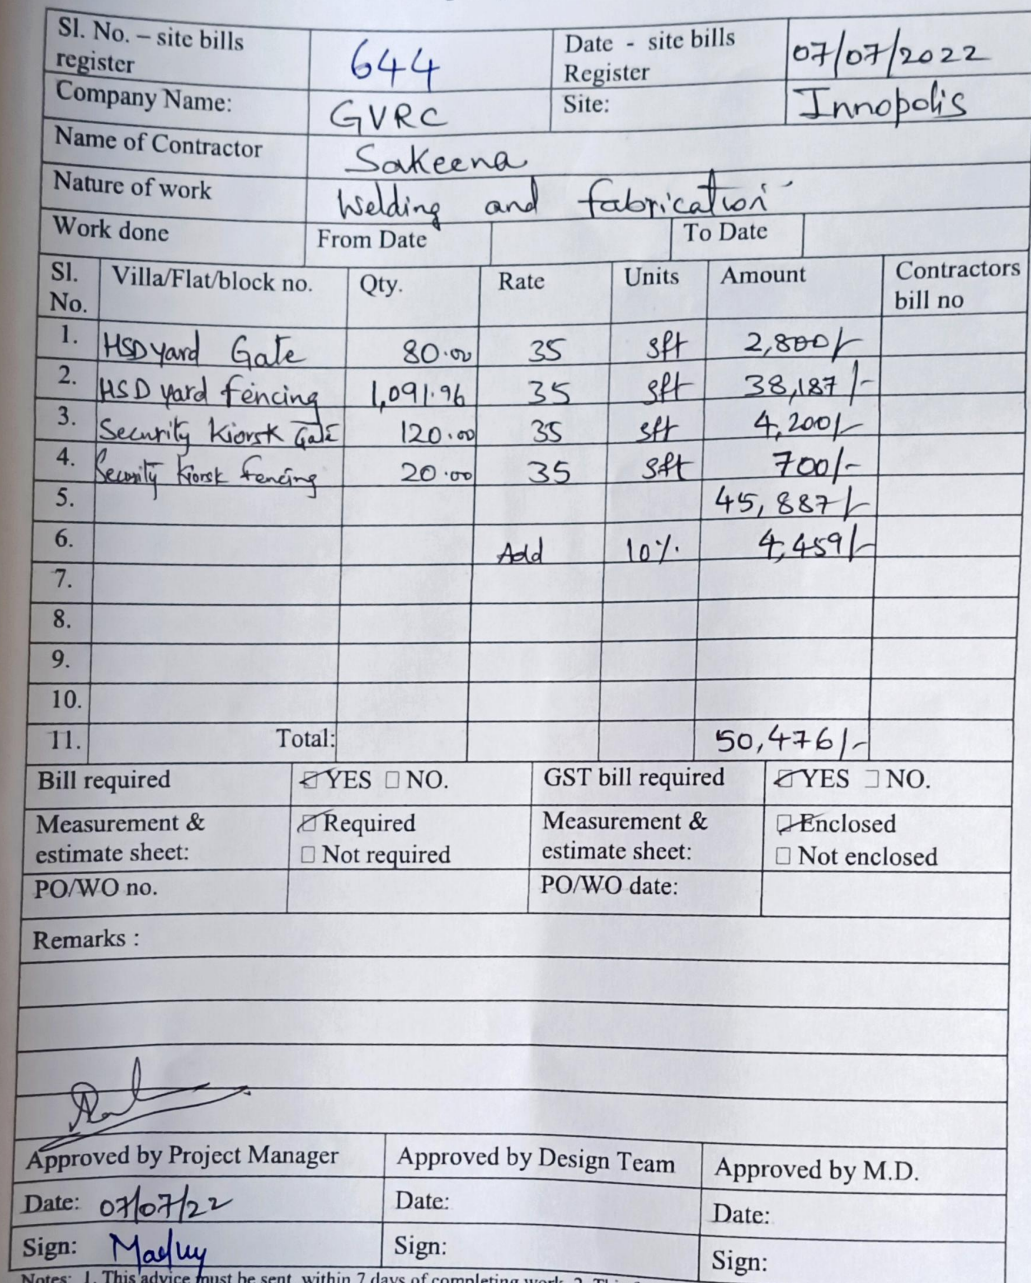 Sl. No. – site bills register 644 Date - site bills Register 07/07/2022
Company Name: GVRC Site: Innopolis
Name of Contractor Sakeena
Nature of work Welding and fabrication
Work done From Date To Date
Sl. No. Villa/Flat/block no. Qty. Rate Units Amount Contractors bill no
1. HSD yard Gate 80.00 35 sft 2,800/-
2. HSD yard fencing 1,091.96 35 sft 38,187/-
3. Security Kiorsk Gate 120.00 35 sft 4,200/-
4. Security Kiorsk fencing 20.00 35 sft 700/-
5. 45,887/-
6. Add 10% 4,459/-
7.
8.
9.
10.
11. Total: 50,476/-
Bill required YES NO. GST bill required YES NO.
Measurement & estimate sheet: Required Not required Measurement & estimate sheet: Enclosed Not enclosed
PO/WO no. PO/WO date:
Remarks :
Approved by Project Manager Approved by Design Team Approved by M.D.
Date: 07/07/22 Date: Date:
Sign: Sign: Sign:
Notes: 1. This advice must be sent within 7 days of completing work. 2.